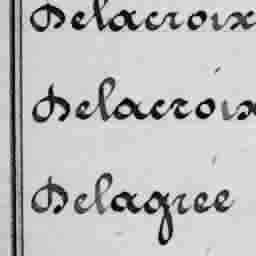 Delacroix
Delacroix
Delagrée